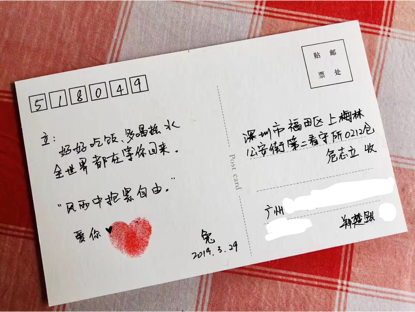 518049
贴 邮
票 处
立：
好好吃饭、多喝热水
全世界都在等你回来。
“风雨中抱紧自由。”
爱你
兔
2019.3.29
Post card
深圳市福田区上梅林
公安街第二看守所0212仓
危志立 收
广州